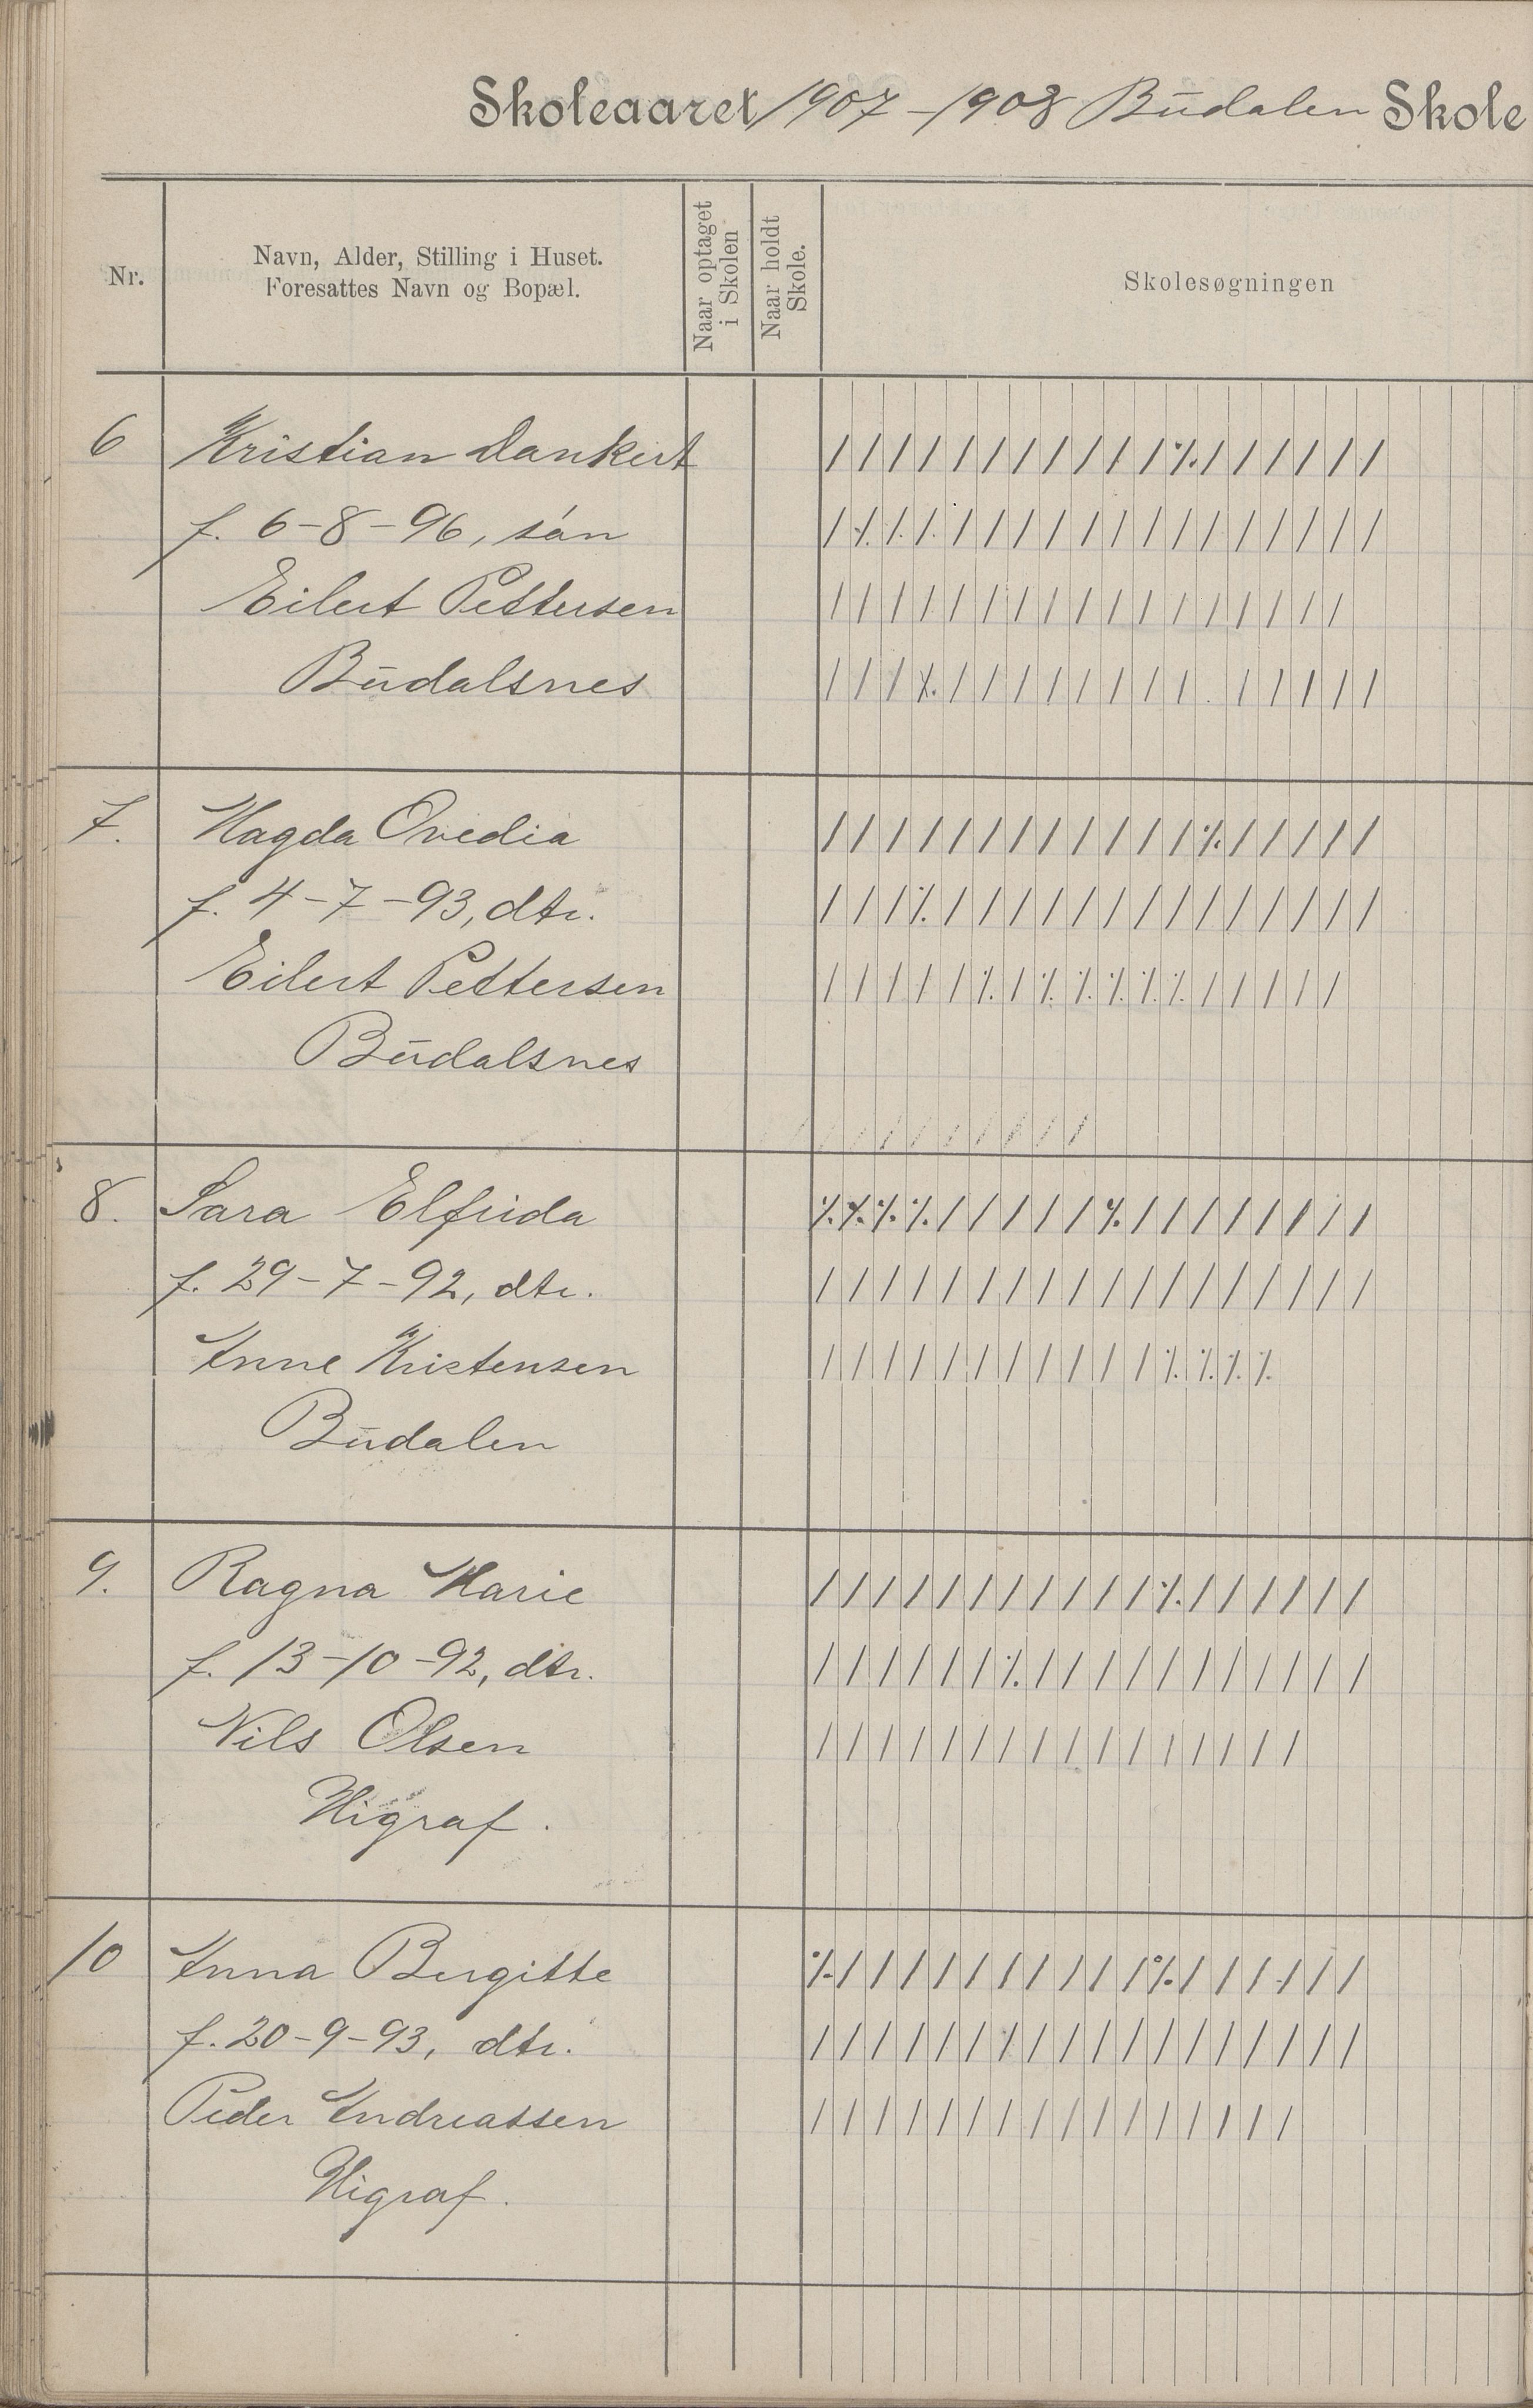 Skoleaaret 1907-1908 Budalen Skole
Nr.
Navn, Alder, Stilling i Huset.
Foresattes Navn og Bopæl.
Naar optaget
i Skolen
Naar holdt
Skole.
Skolesøgningen
6 Kristian Dankert
f. 6-8-96, sön
Eilert Pettersen
Budalsnes
7. Magda Ovedia
f. 4-7-93, dtr.
Eilert Pettersen
Budalsnes
8. Sara Elfrida
f. 29-7-92, dtr.
Anne Kristensen
Budalen
9. Ragna Marie
f. 13-10-92, dtr.
Nils Olsen
Higraf.
10 Anna Birgitte
f. 20-9-93, dtr.
Peder Andreassen
Higraf.